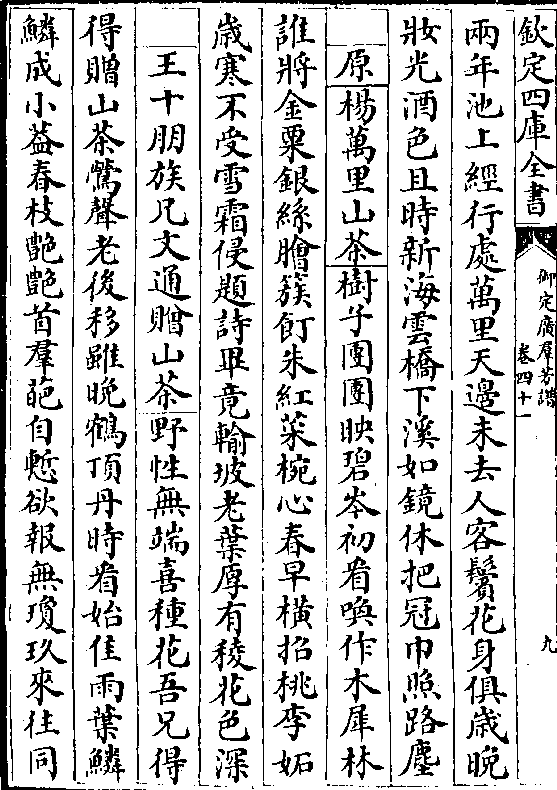 欽定四庫全書
御定廣羣芳譜
卷四十一
九
兩年池上經行處萬里天邊未去人客鬢花身俱歲晚
妝光酒色且時新海雲橋下溪如鏡休把冠巾照路塵
原楊萬里山茶樹子團團映碧岑初看喚作木犀林
誰將金粟銀絲膾簇飣朱紅菜椀心春早横招桃李妬
歲寒不受雪霜侵題詩畢竟輸坡老葉厚有稜花色深
王十朋族兄文通贈山茶野性無端喜種花吾兄得
得贈山茶鶯聲老後移雖晚鶴頂丹時看始佳雨葉鱗
鱗成小葢春枝艷艷首羣葩自慙欲報無瓊玖來往同